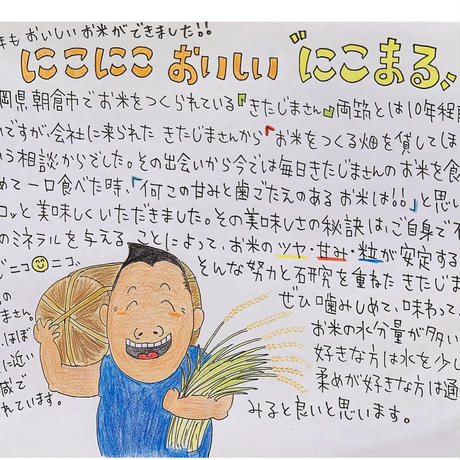 年もおいしいお米ができました!!
にこにこ おいしい "にこまる〟
岡県朝倉市でお米をつくられている『きたじまさん』両筑とは10年程前
ですが会社に来られた きたじまさんから「お米をつくる畑を貸してほ
う相談からでした。その出会いから今では毎日きたじまさんのお米を食
めて一口食べた時、「何この甘みと歯ごたえのある お米は!!」と思い
コッと美味しくいただきました。その美味しさの秘訣は、ご自身で
のミネラルを与えることによって、お米のツヤ・甘み・粒が安定する
ニコニコ、
そんな努力と研究を重ねた きたじま
ぜひ噛みしめて、味わって
お米の水分量が多い
好きな方は水を少し
柔めが好きな方は通
みると良いと思います。
の
まさん。
ほぼ
に近い
減で
れています。